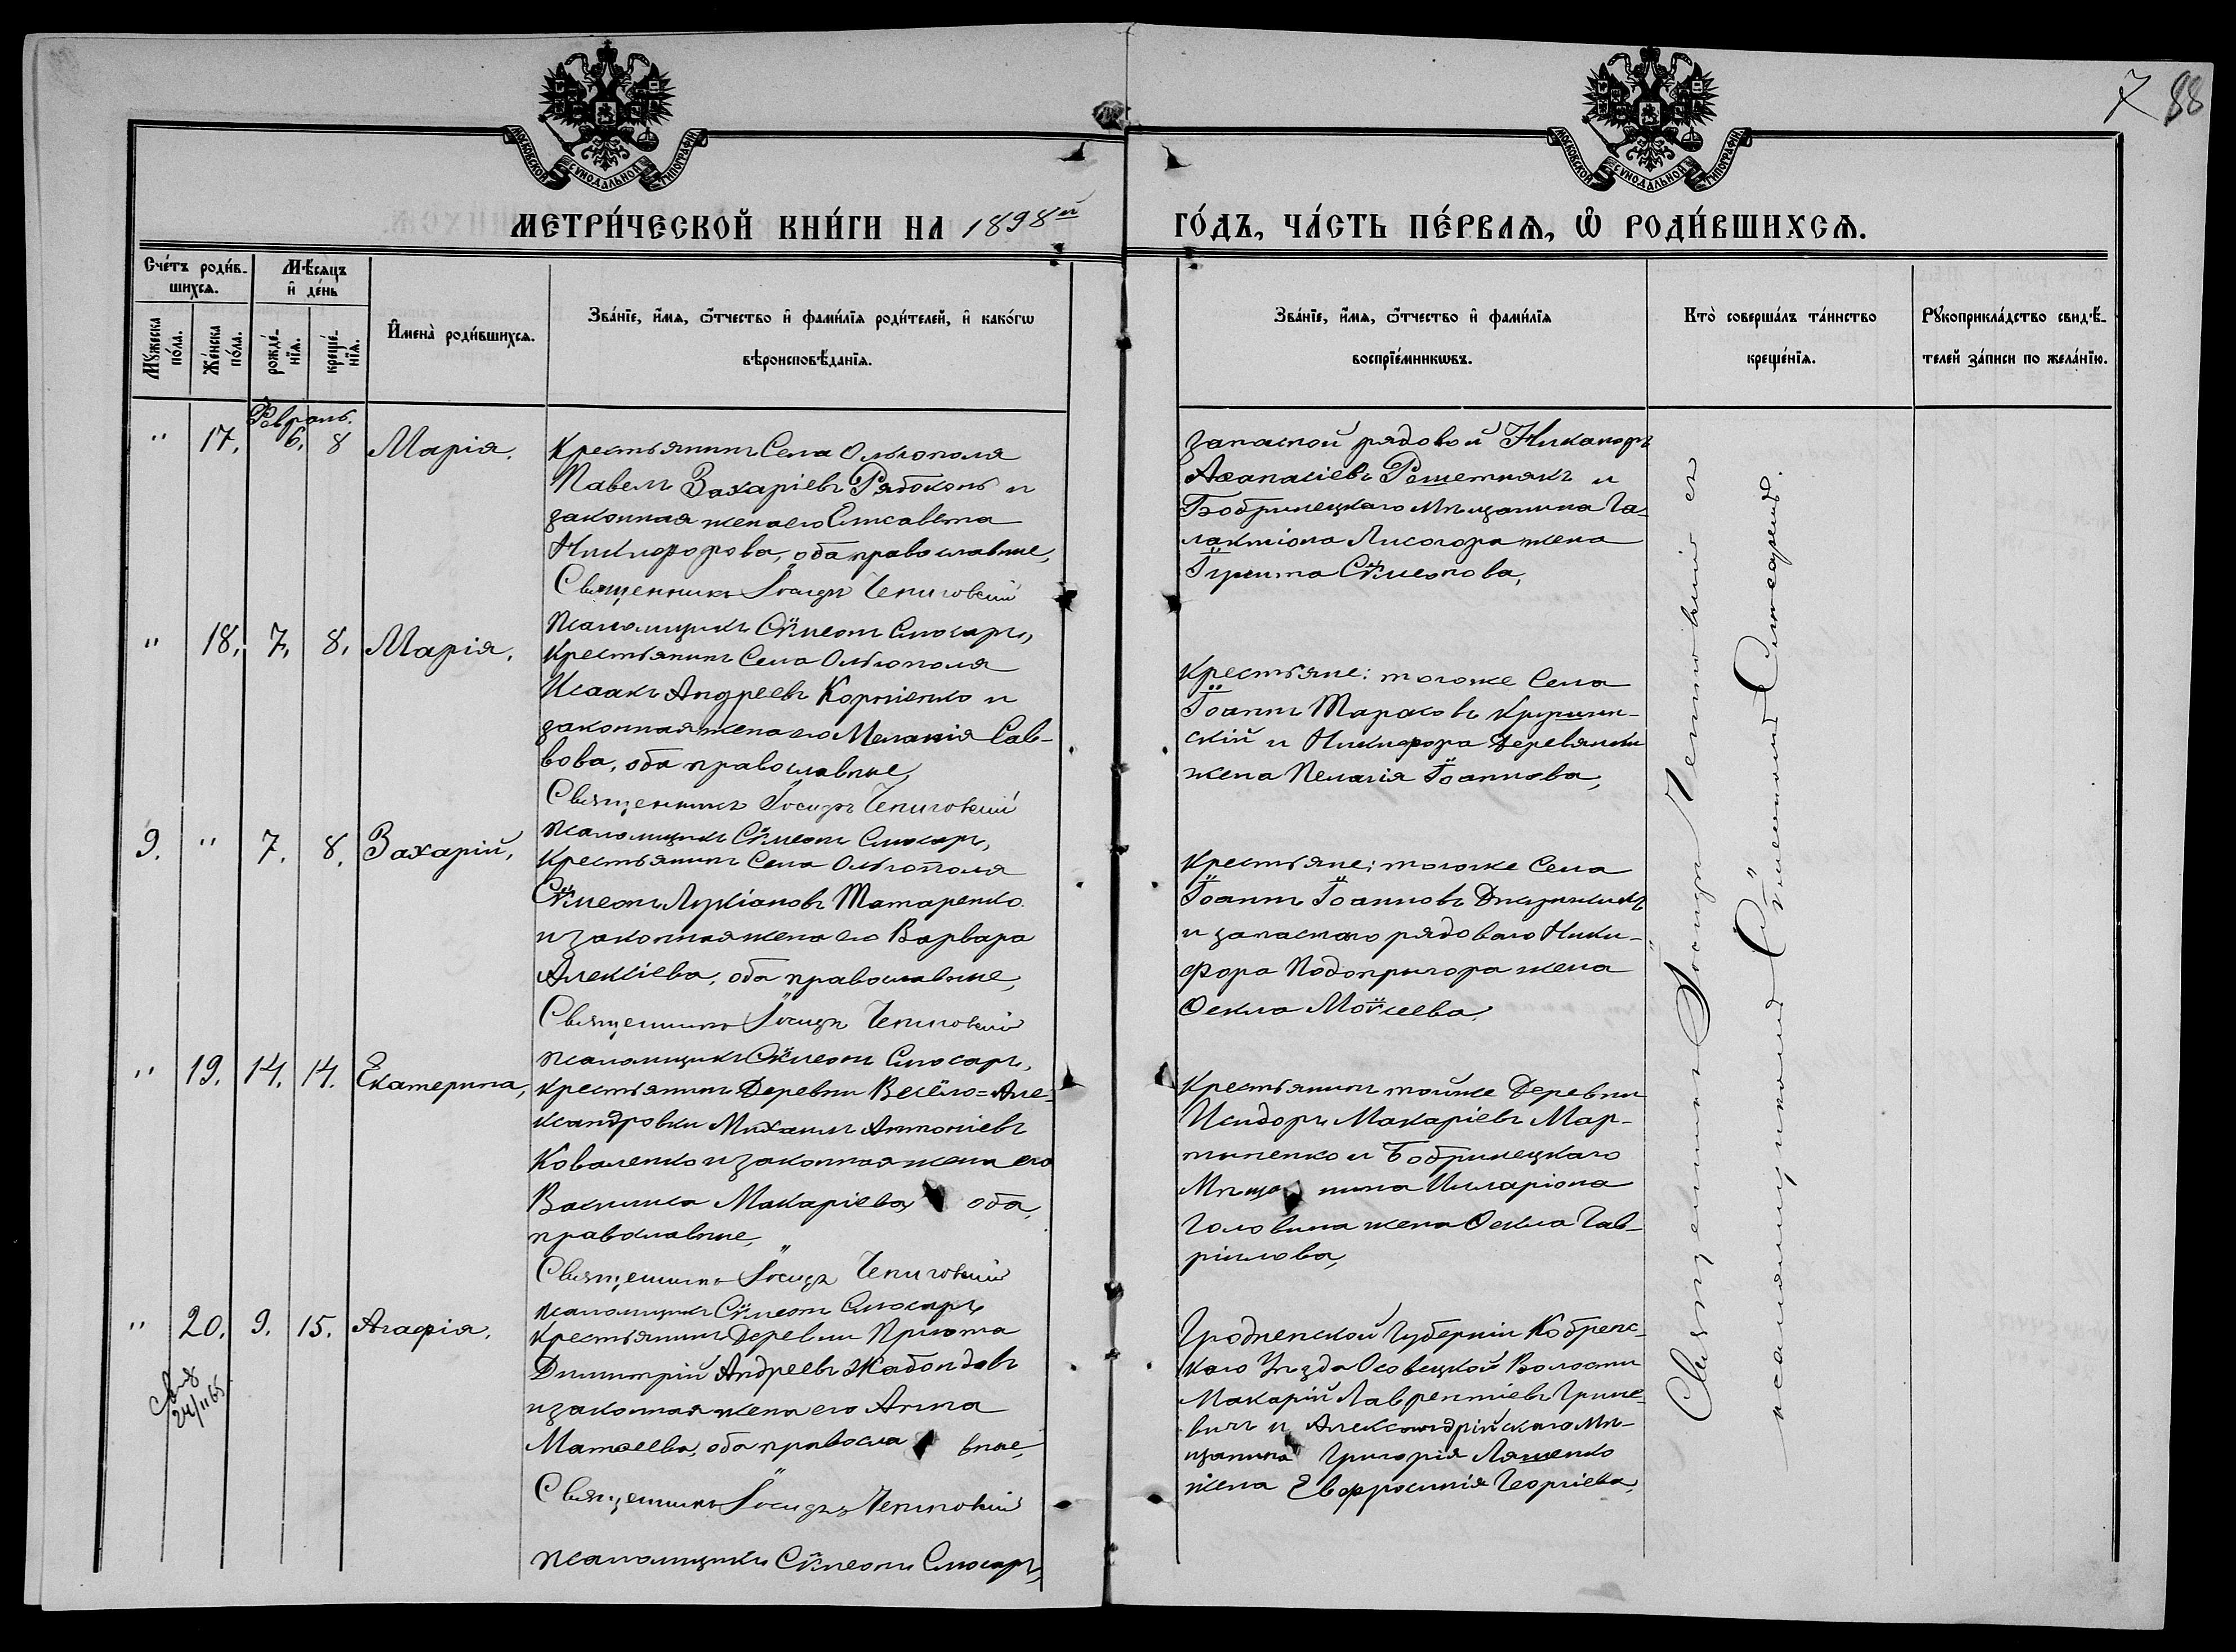 7 88
МОСКОВСКОЙ СѴНОДАЛЬНОЙ ТИПОГРАФІИ
МОСКОВСКОЙ СѴНОДАЛЬНОЙ ТИПОГРАФІИ
МЕТРИ́ЧЕСКОЙ КНИ́ГИ НА 1898й
ГО́ДЪ, ЧА́СТЬ ПЕ́РВАѦ, Ѡ РОДИ́ВШИХСѦ.
Сче́тъ роди́в-
шихсѧ.
Мѣ́сяцъ
и де́нь
Мꙋжеска
по́ла.
Же́нска
по́ла.
рожде́-
нїѧ.
креще́-
нїѧ.
Имена̀ роди́вшихсѧ.
Зва́нїе, и́мѧ, ѻ́тчество и фами́лїѧ роди́телей, и како́гѡ
вѣроисповѣ́данїѧ.
Зва́нїе, и́мѧ, ѻ́тчество и фами́лїѧ
воспрїе́мникѡвъ.
Кто̀ соверша́лъ та́инство
креще́нїѧ.
Рꙋкоприкла́дство свидѣ́-
телей за́писи по жела́нїю.
Февраль.
" 17. 6. 8 Марія.
Крестьянинъ Села Ольгополя
Павелъ Захаріевъ Рябоконь и
законная жена его Елисавета
Никифорова, оба православные,
Священникъ Іосифъ
псаломщикъ Сѵмеонъ Слюсарь,
запасной рядовой Никаноръ
Аѳанасіевъ Решетнякъ и
Бобринецкаго Мѣщанина Га-
лактіона Лисогора жена
Сѵмеонова,
" 18. 7. 8. Марія.
Крестьянинъ Села Ольгополя
Исаакъ Андреевъ Корніенко и
законная жена его Меланія Сав-
вова, оба православные,
Священникъ Іосифъ
псаломщикъ Сѵмеонъ Слюсарь,
Крестьяне: тогоже Села
Іоаннъ Тарасовъ
скій и Никифора Деревянки
жена Пелагія Іоаннова,
9. " 7. 8. Захарій,
Крестьянинъ Села Ольгополя
Сѵмеонъ Лукіановъ Татаренко
и законная жена его Варвара
Алексіева, оба православные,
Священникъ Іосифъ
псаломщикъ Сѵмеонъ Слюсарь,
Крестьяне: тогоже Села
Іоаннъ Іоанновъ
и запаснаго рядоваго Ники-
фора Подопригора жена
Ѳекла Моѵсеева
" 19. 14. 14. Екатерина,
крестьянинъ Деревни Весёло=Але-
ксандровки Михаилъ Антоніевъ
Коваленко и законная жена его
Василиса Макаріева, оба
православные,
Священникъ Іосифъ
псаломщикъ Сѵмеонъ Слюсарь
Крестьянинъ тойже Деревни
Исидоръ Макаріевъ Мар-
тыненко и Бобринецкаго
Мѣщанина Иларіона
Головина жена Ѳекла Гав-
ріилова,
" 20. 9. 15. Агафія.
24/II 65
Крестьянинъ Деревни Пріюта
Димитрій Андреевъ Жабондовъ
и законная жена его Анна
Матѳеева, оба православные,
Священникъ Іосифъ
псаломщикъ Сѵмеонъ Слюсарь,
Гродненской Губерніи Кобренс-
каго Уѣзда Осовецкой Волости
Макарій Лаврентіевъ Грине-
вичъ и Александрійскаго Мѣ-
щанина Григорія Ляшенко
жена Евфросинія Георгіева,
Священникъ Іосифъ съ
псаломщикомъ Сѵмеономъ Слюсаремъ.